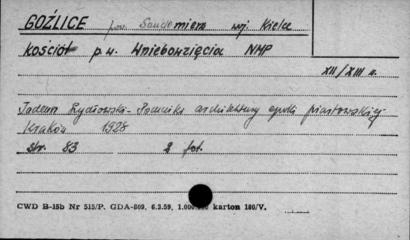 GOŹLICE pow. Sandomierz woj. Kielce
kościół p.w. Wniebowzięcia NMP
XII/XIII w.
Pomniki architektury epoki piastowskiej
Kraków 1928
str. 83 2 fot.
CWD B-15b Nr 515/P. GDA-809. 6.3.59, 1.000.000 karton 180/V.